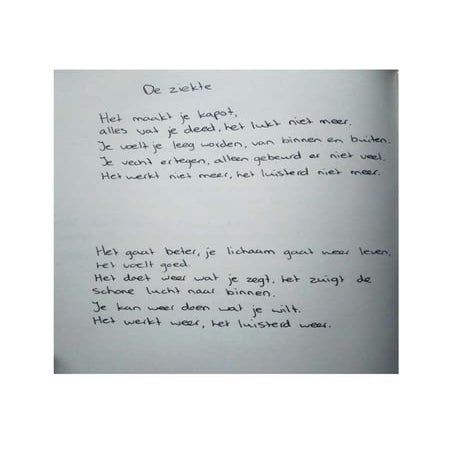 De ziekte
Het maakt je kapot,
alles wat je deed, het lukt niet meer.
Je voelt je leeg worden, van binnen en buiten.
Je vecht ertegen, alleen gebeurd er niet veel.
Het werkt niet meer, het luisterd niet meer.
Het gaat beter, je lichaam gaat weer leven,
het voelt goed.
Het doet weer wat je zegt, het zuigt de
schone lucht naar binnen.
Je kan weer doen wat je wilt.
Het werkt weer, het luisterd weer.